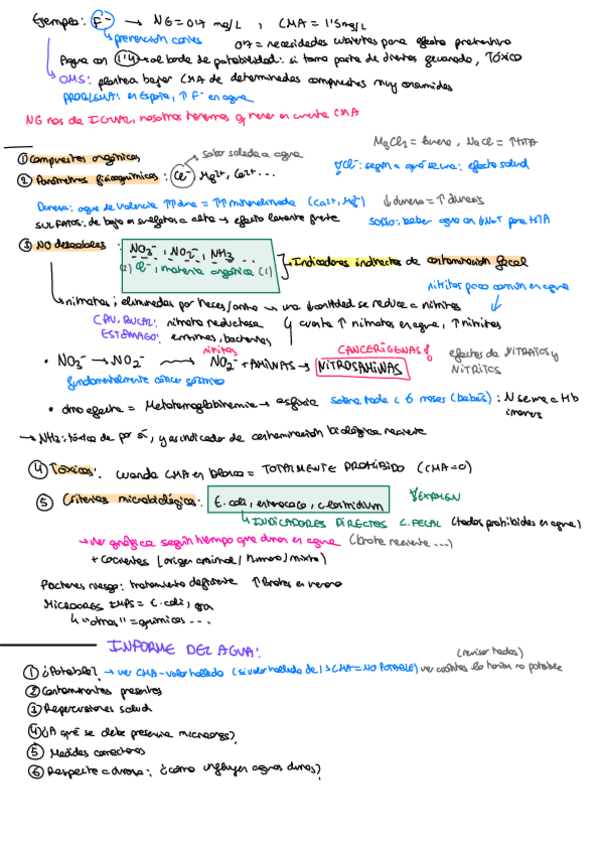 Ejemplo: F⁻ → NG = 0'7 mg/L , CMA = 1'5 mg/L
prevención caries
0'7 = necesidades cubiertas para efecto preventivo
Agua con 1'4 → al borde de potabilidad: si tomo pasta de dientes guanado, TÓXICO
OMS: plantea bajar CMA de determinados compuestos muy consumidos
PROBLEMA: en España, ↑ F⁻ en agua
NG nos da IGUAL, nosotros tenemos q tener en cuenta CMA
MgCl₂ = bueno, NaCl = ↑HTA
① Compuestos orgánicos
sabor salado a agua
② Parámetros fisicoquímicos: Cl⁻ Mg²⁺, Ca²⁺...
Cl⁻: según a qué se una: efecto salud
Dureza: agua de Valencia ↑↑ dura = ↑↑ mineralizada (Ca²⁺, Mg²⁺)
↓ dureza = ↑
SULFATOS: de bajo en sulfatos a alto → efecto laxante fuerte
SODIO: beber agua en bNaT para HTA
③ NO deseables: NO₃⁻, NO₂⁻, NH₃ ...
(2) Cl⁻, materia orgánica (1)
Indicadores indirectos de contaminación fecal
nitritos poco común en agua
nitratos: eliminados por heces/orina → una cantidad se reduce a nitritos
CAV. BUCAL: nitrato reductasa
cuanto ↑ nitratos en agua, ↑ nitritos
ESTÓMAGO: enzimas, bacterias
nitritos
CANCERÍGENAS
• NO₃⁻ → NO₂⁻ → NO₂⁻ + AMINAS → NITROSAMINAS
efectos de NITRATOS y NITRITOS
fundamentalmente cáncer gástrico
• otro efecto = Metahemoglobinemia → asfixia sobre todo < 6 meses (bebés): N se une a Hb
→ NH₃: tóxico de por sí, y es indicador de contaminación biológica reciente
④ Tóxicos: cuando CMA en blanco = TOTALMENTE PROHIBIDO (CMA=0)
⑤ Criterios microbiológicos: E. coli, enterococo, clostridium
EXAMEN
INDICADORES DIRECTES C. FECAL (todos prohibidos en agua)
→ ver gráfica según tiempo que duran en agua (brote reciente ...)
+ cocientes (origen animal / humano / mixto)
Factores riesgo: tratamiento deficiente ↑ Brotes en verano
MICROORGS IMPS = E. coli,
"otros" = químicas ...
INFORME DEL AGUA:
(revisar todos)
① ¿Potable? → ver CMA - valor hallado (si valor hallado de 1 > CMA = NO POTABLE) ver cuántos lo hacen no potable
② Contaminantes presentes
③ Repercusiones salud
④ ¿A qué se debe presencia microorgs?
⑤ Medidas correctoras
⑥ Respecto a dureza: ¿cómo influyen aguas duras?